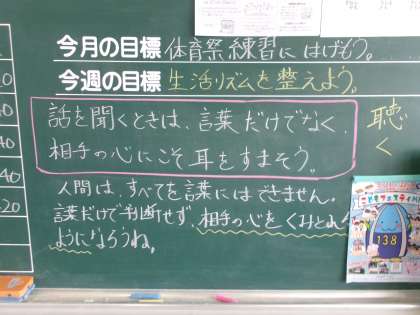 今月の目標 体育祭練習にはげもう。
今週の目標 生活リズムを整えよう。
話を聞くときは、言葉だけでなく、
相手の心にこそ耳をすまそう。
聴く
人間は、すべてを言葉にはできません。
言葉だけで判断せず、相手の心をくみとれる
ようになろうね。
138
40
20